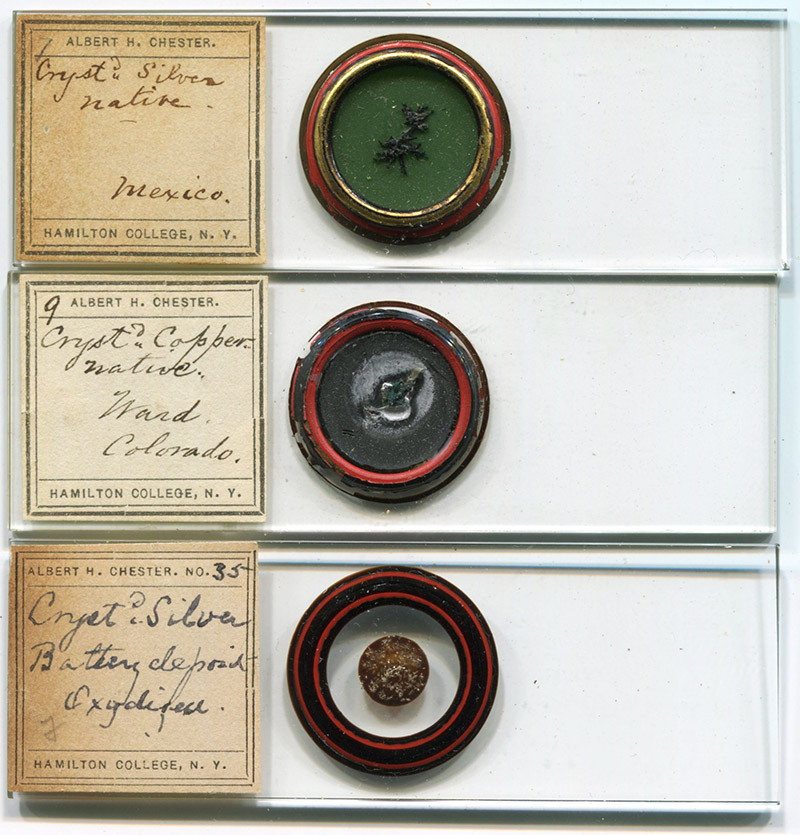 1
ALBERT H. CHESTER.
Crystd. Silver
native.
Mexico.
HAMILTON COLLEGE, N. Y.
9
ALBERT H. CHESTER.
Crystd. Copper
native.
Ward.
Colorado.
HAMILTON COLLEGE, N. Y.
ALBERT H. CHESTER. NO. 35
Crystd. Silver
Battery deposit
Oxydised.
HAMILTON COLLEGE, N. Y.